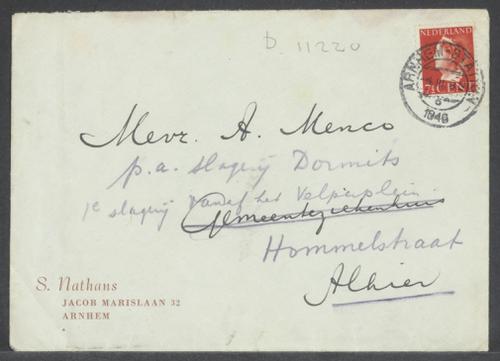 D. 11220
NEDERLAND
7½ CENT
ARNHEM-STATION
1946
Mevr. A. Menco
p.a. slagerij Dormits
1e slagerij vanaf het Velperplein
Gemeenteziekenhuis
Hommelstraat
Alhier
S. Nathans
JACOB MARISLAAN 32
ARNHEM